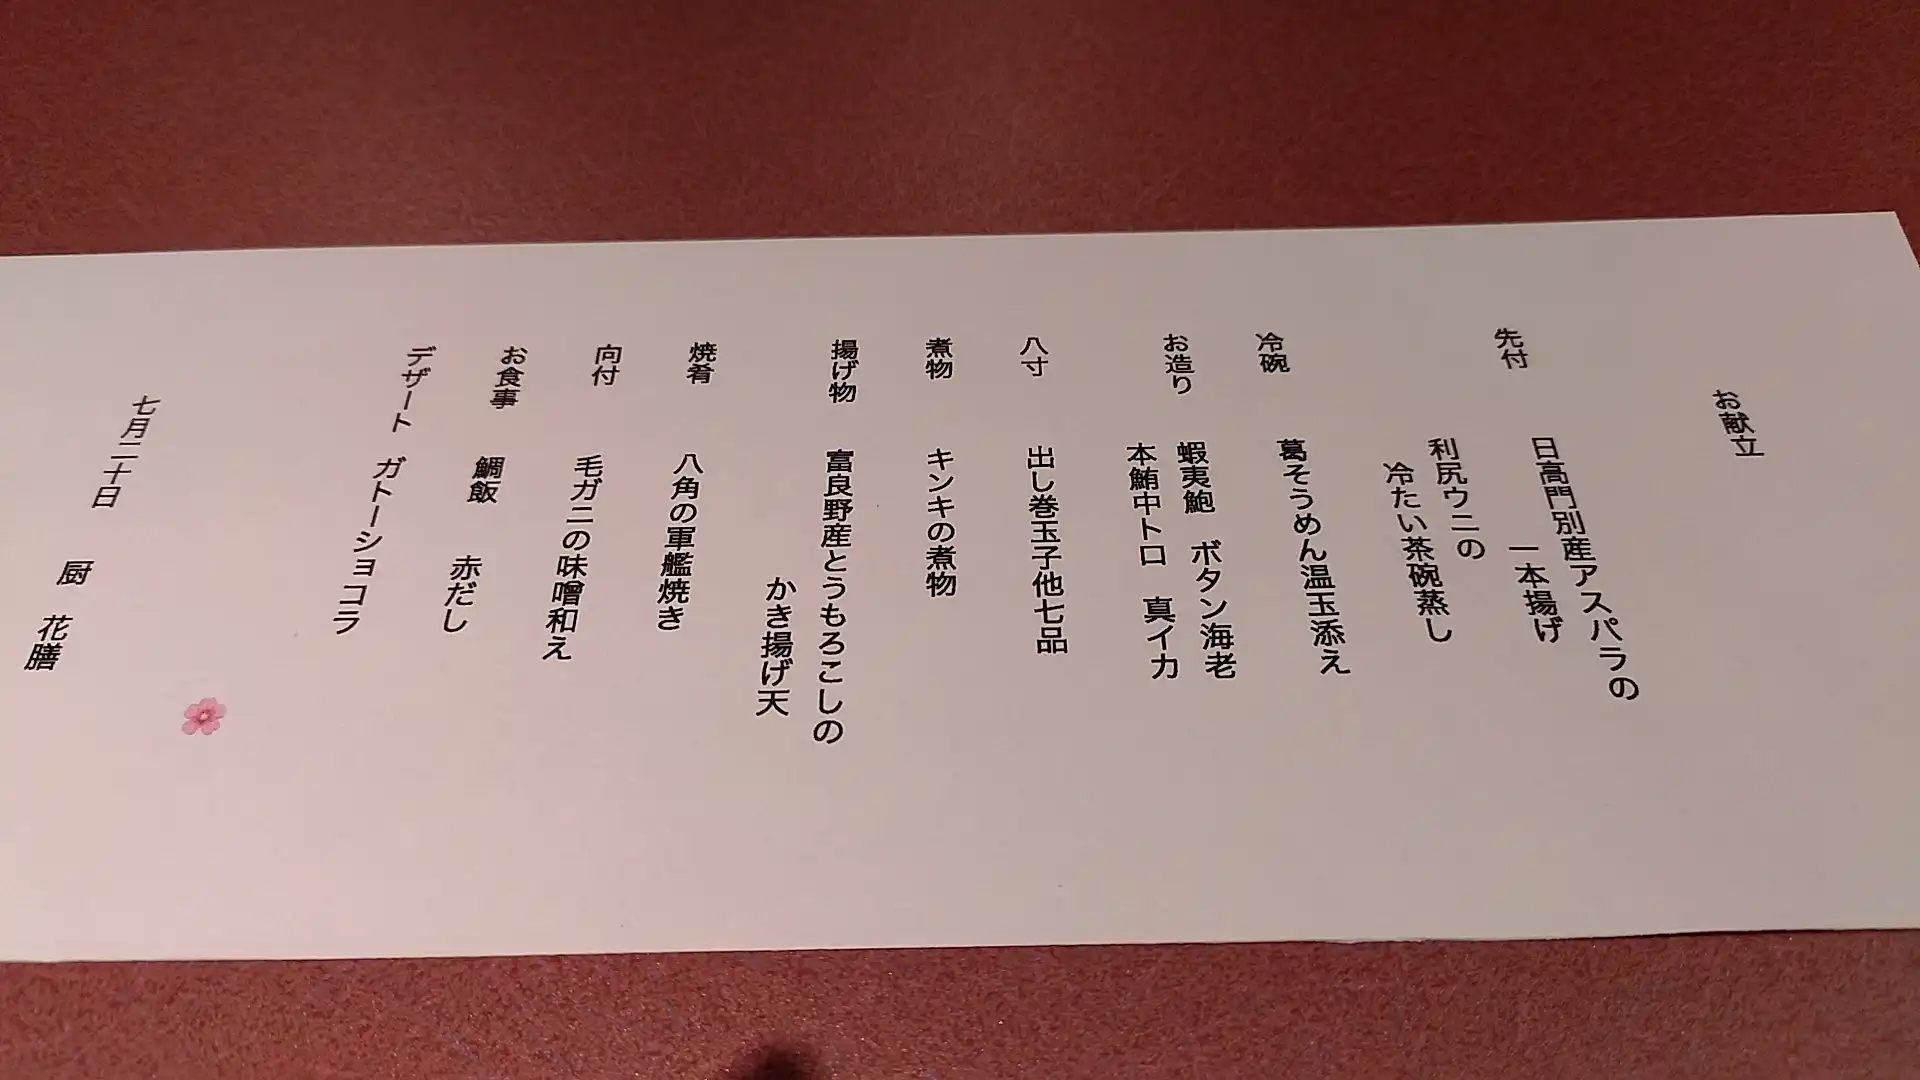 お献立
先付 日高門別産アスパラの
一本揚げ
利尻ウニの
冷たい茶碗蒸し
冷碗 葛そうめん温玉添え
お造り 蝦夷鮑 ボタン海老
本鮪中トロ 真イカ
八寸 出し巻玉子他七品
煮物 キンキの煮物
揚げ物 富良野産とうもろこしの
かき揚げ天
焼肴 八角の軍艦焼き
向付 毛ガニの味噌和え
お食事 鯛飯 赤だし
デザート ガトーショコラ
七月二十日 厨 花膳